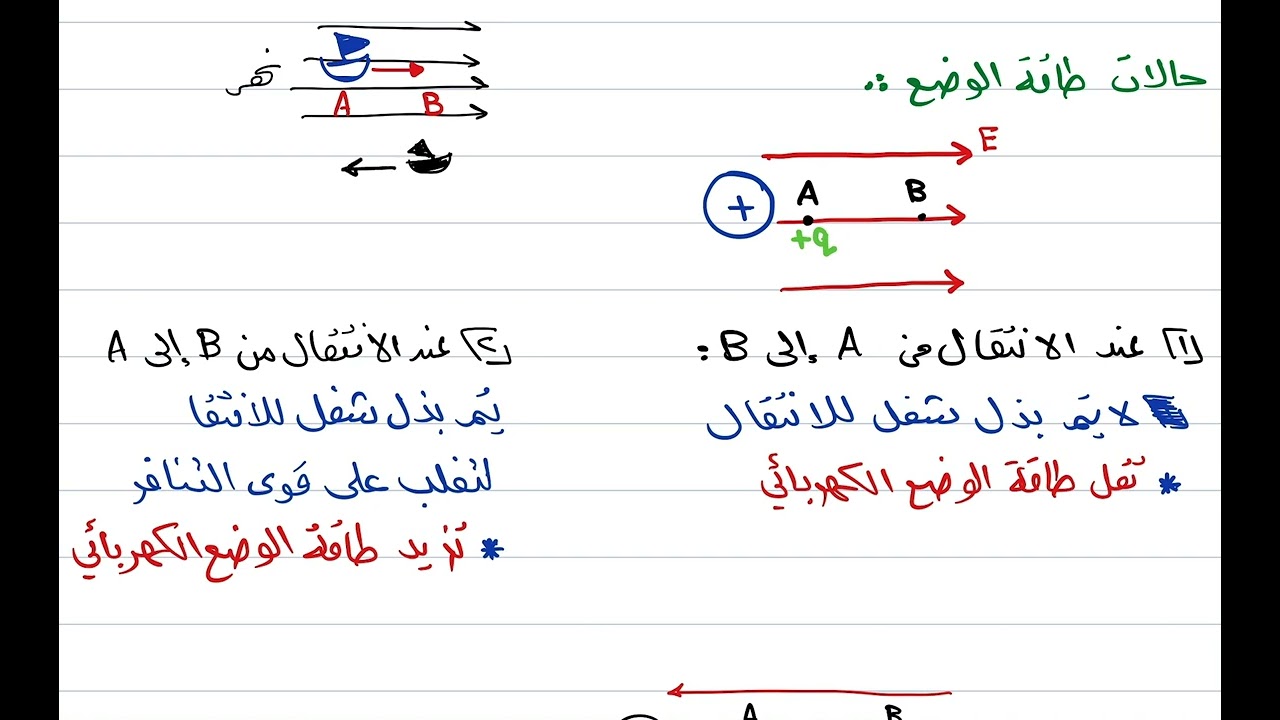 حالات طاقة الوضع :.
E
A B
+
+q
نهر
A B
1) عند الانتقال من A إلى B :
لا يتم بذل شغل للانتقال
* تقل طاقة الوضع الكهربائي
2) عند الانتقال من B إلى A
يتم بذل شغل للانتقا
لتغلب على قوى التنافر
* تزيد طاقة الوضع الكهربائي
A B